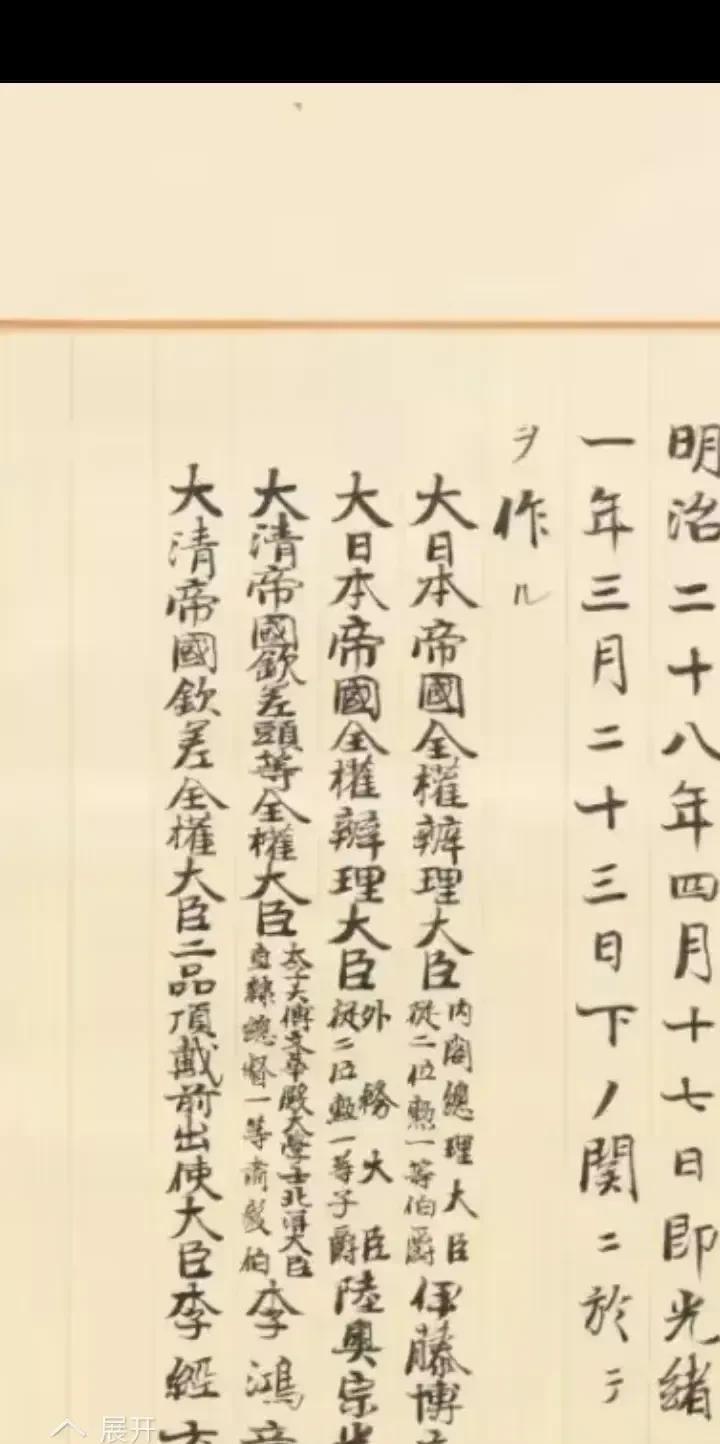 明治二十八年四月十七日即光緒
一年三月二十三日下ノ関ニ於テ
ヲ作ル
大日本帝國全權辨理大臣
內閣總理大臣
從二位勲一等伯爵
伊藤博
大日本帝國全權辨理大臣
外務大臣
從二位勲一等子爵
陸奥宗光
大清帝國欽差頭等全權大臣
太子太傅文華殿大學士北洋大臣
直隸總督一等肅毅伯
李鴻章
大清帝國欽差全權大臣二品頂戴前出使大臣李經方
展开